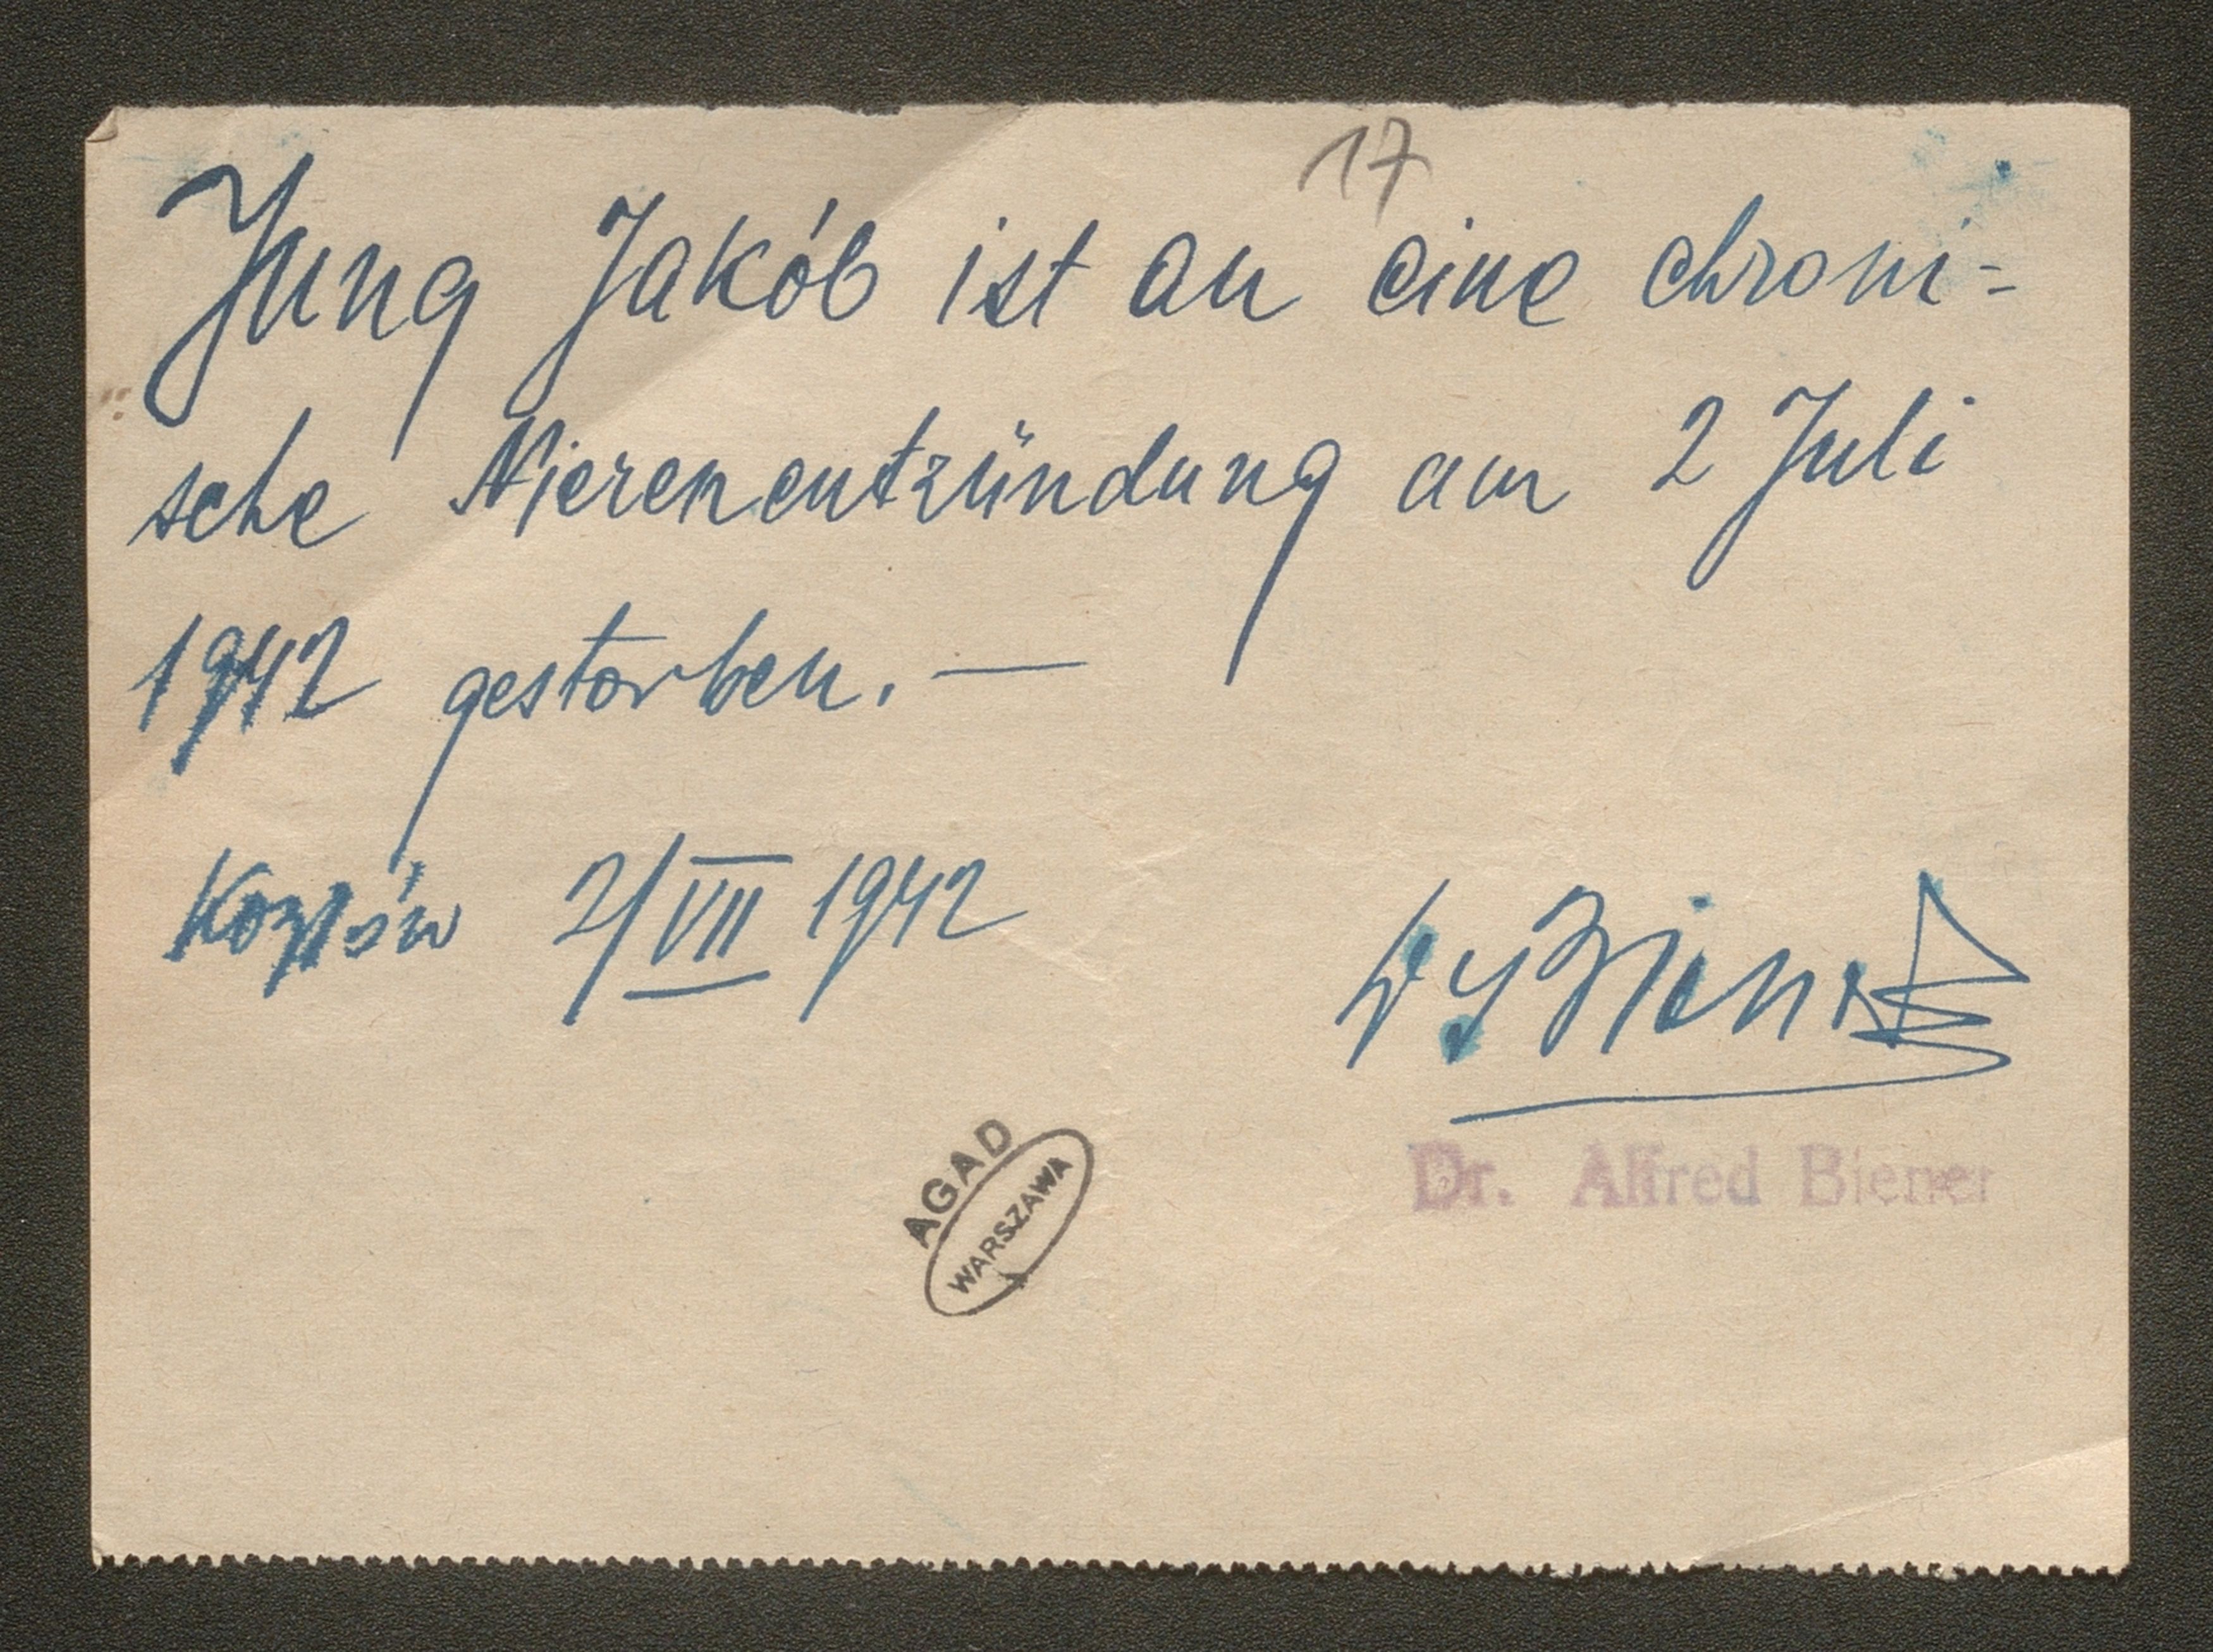 17
Jung Jakób ist an eine chroni=
sche Nierenentzündung am 2 Juli
1942 gestorben. —
Kozłów 2/VII 1942
Dr Biener
Dr. Alfred Biener
AGAD
WARSZAWA